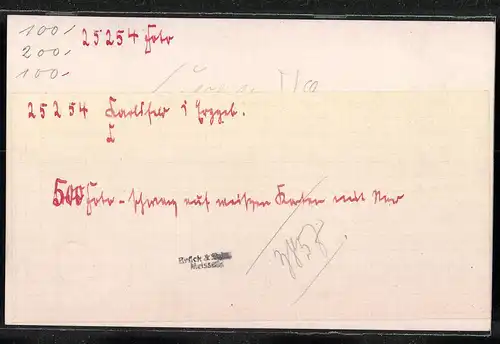 100.-
200.-
100.-
25254 Foto
25254 Karlsfeld i Erzgeb.
I
500 Foto - schwarz auf weißen Karten mit
Brück &
Meissen